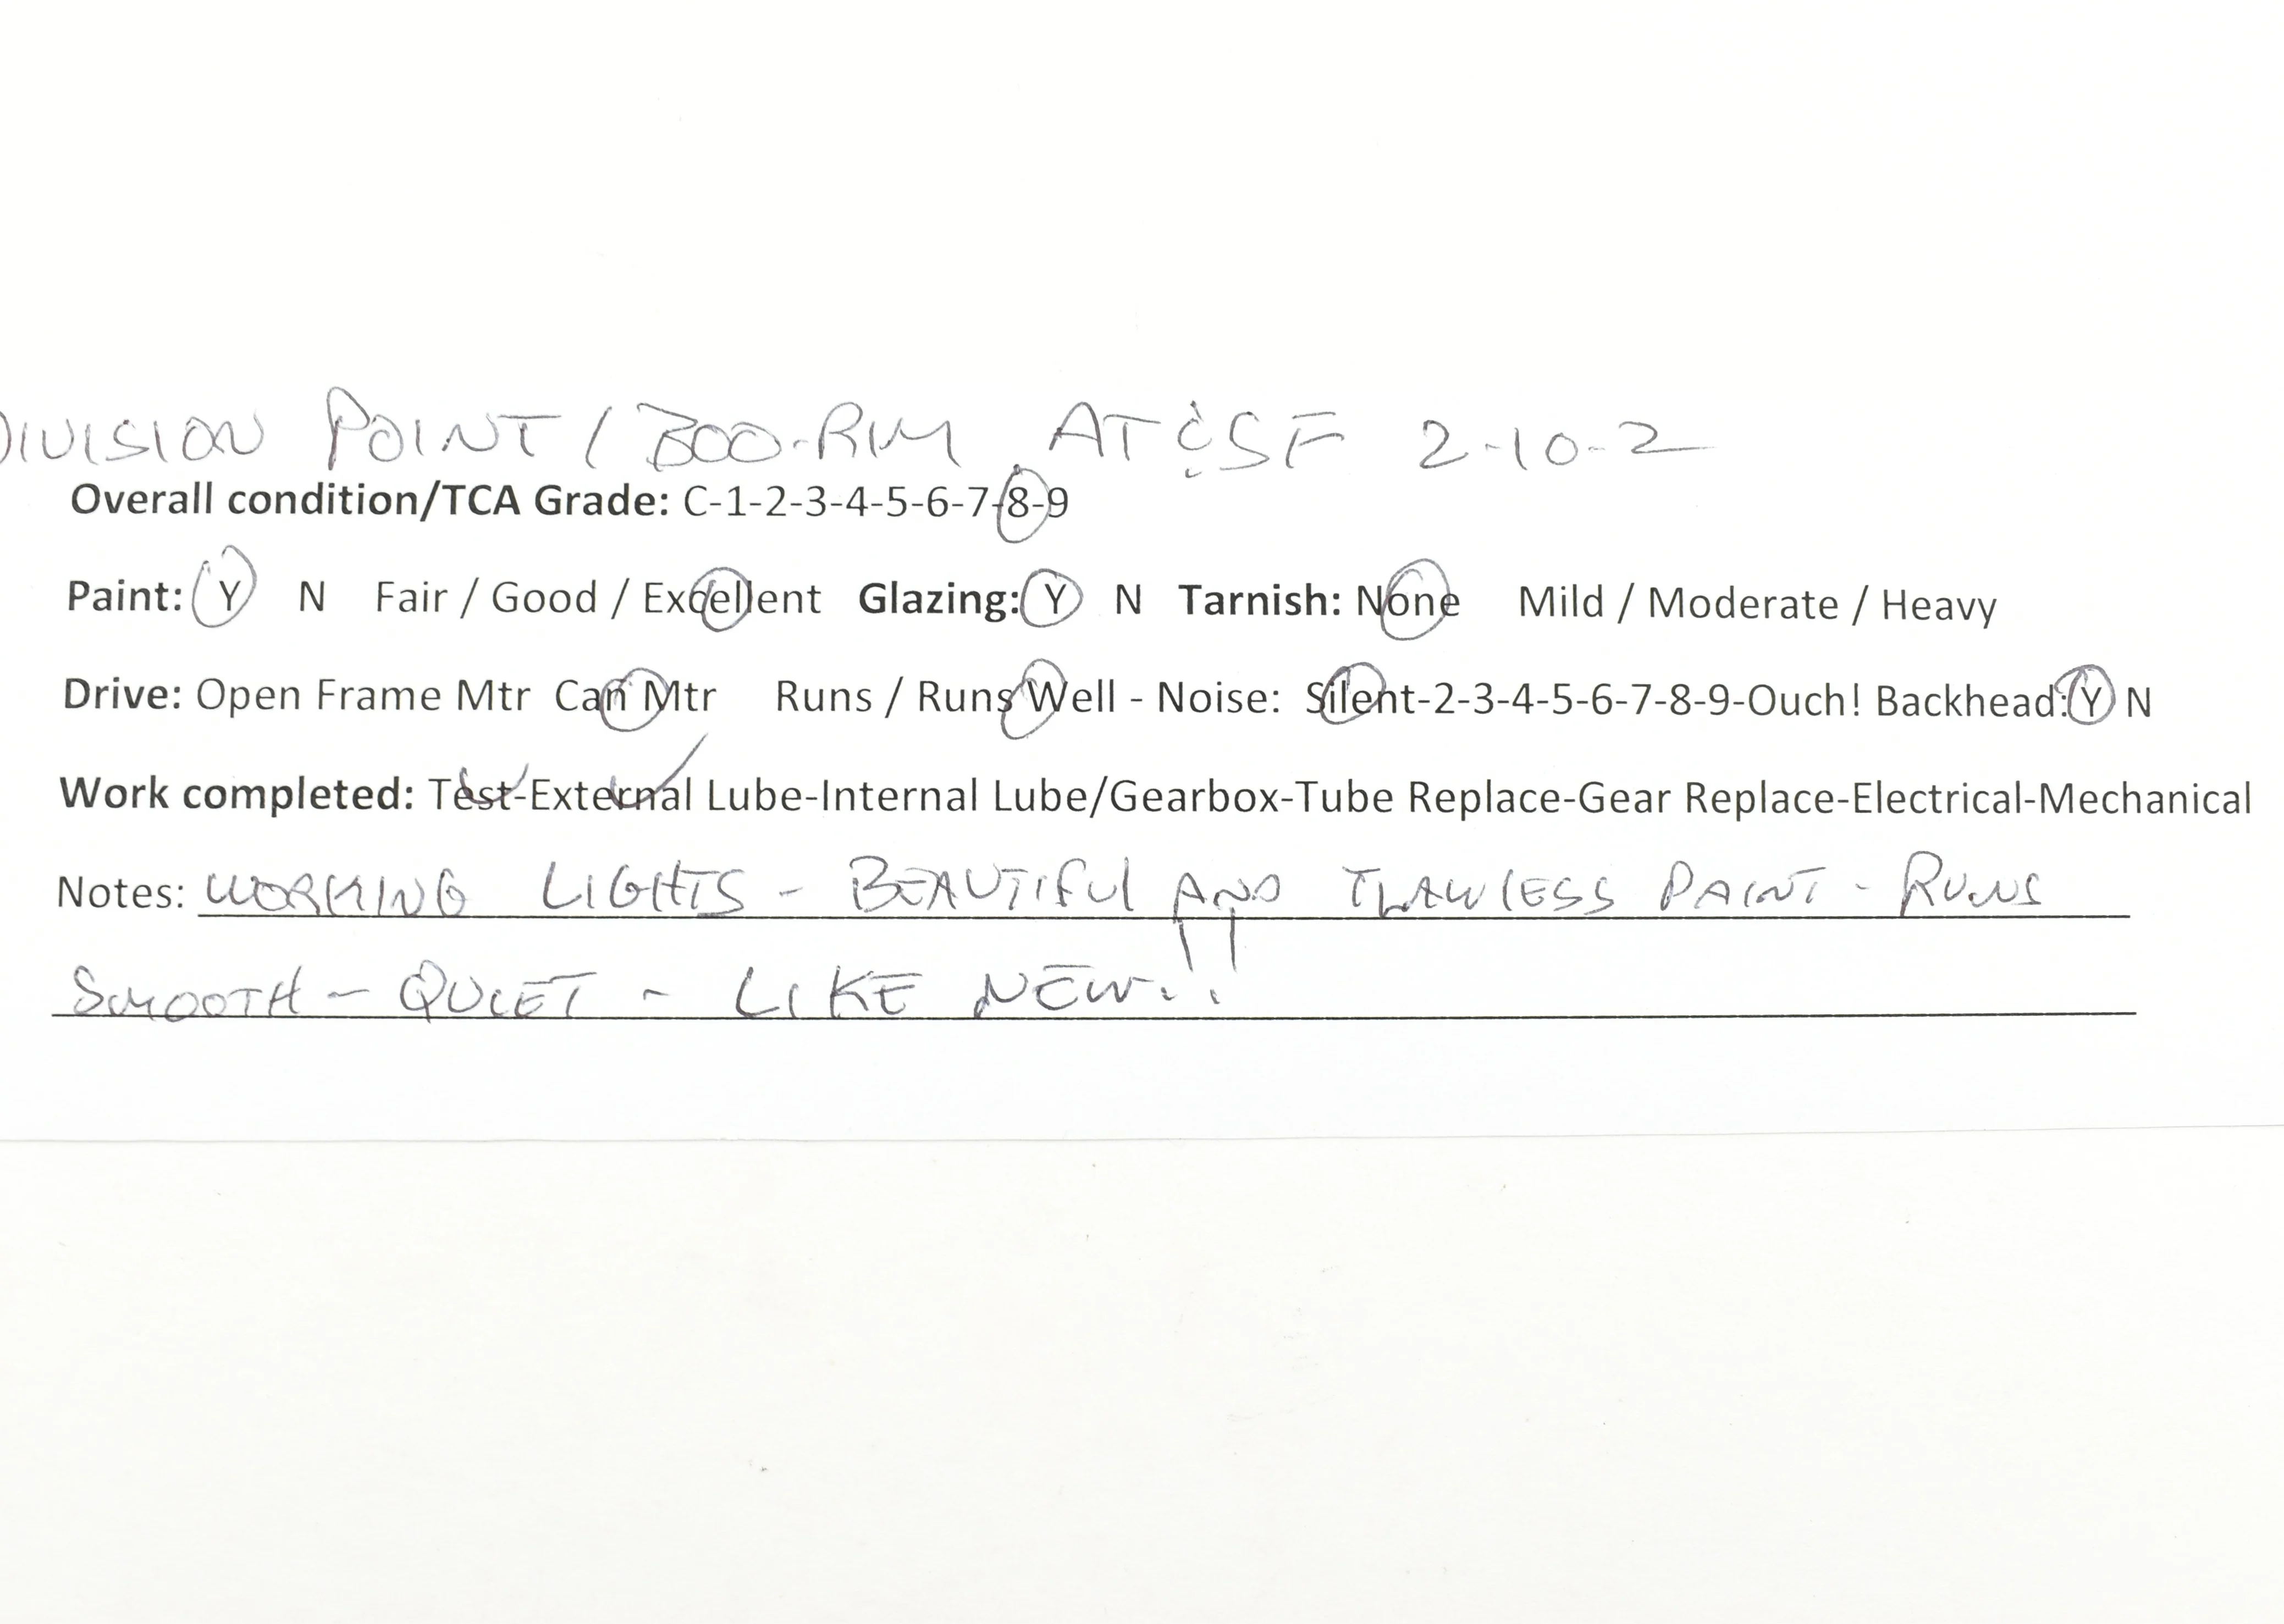 DIVISION POINT / BOO-RIM AT&SF 2-10-2
Overall condition/TCA Grade: C-1-2-3-4-5-6-7-8-9
Paint: Y N Fair / Good / Excellent Glazing: Y N Tarnish: None Mild / Moderate / Heavy
Drive: Open Frame Mtr Can Mtr Runs / Runs Well - Noise: Silent-2-3-4-5-6-7-8-9-Ouch! Backhead: Y N
Work completed: Test-External Lube-Internal Lube/Gearbox-Tube Replace-Gear Replace-Electrical-Mechanical
Notes: WORKING LIGHTS - BEAUTIFUL AND FLAWLESS PAINT - RUNS
SMOOTH - QUIET - LIKE NEW!!